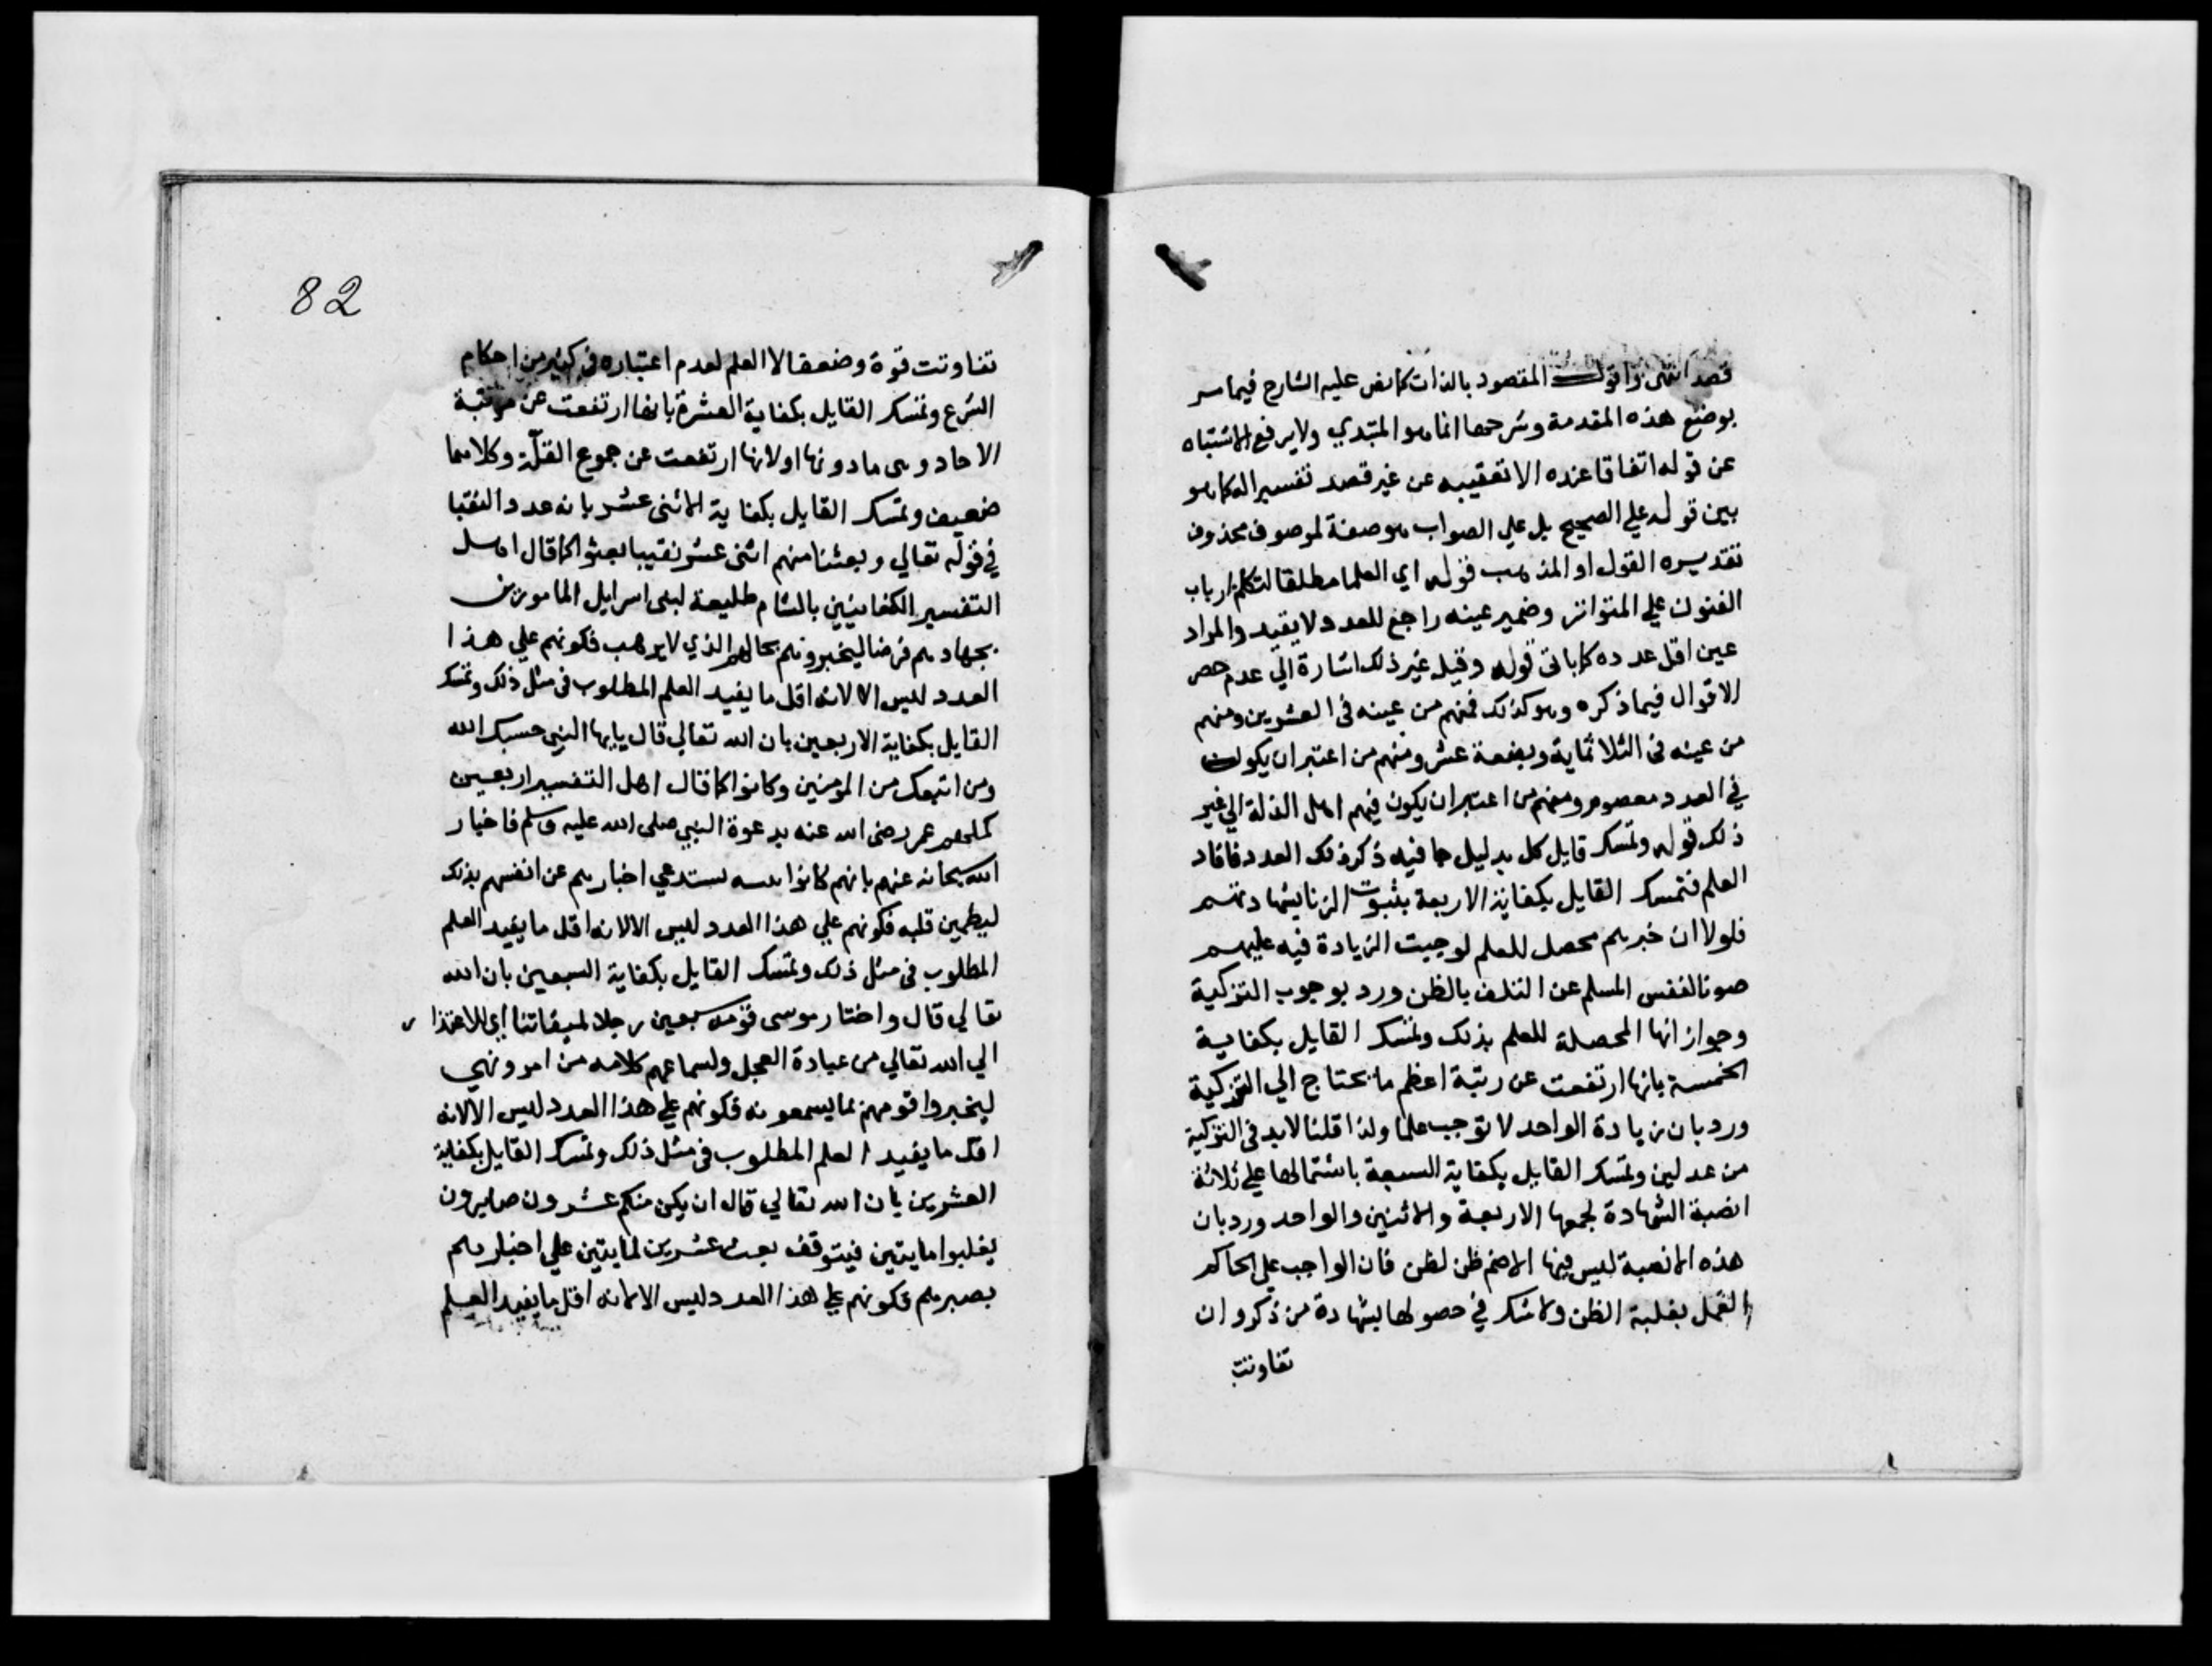 قصد انتهى واقول المقصود بالذات كما نص عليه الشارح فيما سر
بوضع هذه المقدمة وشرحها انما هو المبتدي ولا يرفع الاشتباه
عن قوله اتفاقا عنده الا تعقيبه عن غير قصد تفسيرا له كما هو
بين قوله علي الصحيح بل علي الصواب هو صفة لموصوف محذوف
تقديره القول او المذهب قوله اي العلما مطلقا لتكلم ارباب
الفنون علي المتواتر وضمير عينه راجع للعدد لا يقيد والمراد
عين اقل عدده كما ياتي قوله وقيل غير ذلك اشارة الي عدم حصر
الاقوال فيما ذكره وهو كذلك فمنهم من عينه في العشرين ومنهم
من عينه في الثلاثماية وبضعة عشر ومنهم من اعتبر ان يكون
في العدد معصوم ومنهم من اعتبر ان يكون فيهم اهل الذلة الي غير
ذلك قوله وتمسك قايل كل بدليل جا فيه ذكر ذلك العدد فافاد
العلم فتمسك القايل بكفاية الاربعة بثبوت الزنا بشهادتهم
فلولا ان خبرهم محصل للعلم لوجبت الزيادة فيه عليهم
صونا لنفس المسلم عن التلف بالظن ورد بوجوب التزكية
وجواز انها المحصلة للعلم بذلك وتمسك القايل بكفاية
الخمسة بانها ارتفعت عن رتبة اعظم ما يحتاج الي التزكية
ورد بان زيادة الواحد لا توجب علما ولذا قلنا لا بد في التزكية
من عدلين وتمسك القايل بكفاية السبعة باشتمالها علي ثلاثة
انصبة الشهادة لجمعها الاربعة والاثنين والواحد ورد بان
هذه الانصبة ليس فيها الا ضم ظن لظن فان الواجب علي الحاكم
العمل بغلبة الظن ولا شك في حصولها بشهادة من ذكر وان
تفاوتت
82
تفاوتت قوة وضعفا لا العلم لعدم اعتباره في كثير من احكام
الشرع وتمسك القايل بكفاية العشرة بانها ارتفعت عن مرتبة
الاحاد وهي ما دونها او لانها ارتفعت عن جموع القلة وكلاهما
ضعيف وتمسك القايل بكفاية الاثنى عشر بانه عدد النقبا
في قوله تعالي وبعثنا منهم اثنى عشر نقيبا بعثوا كما قال اهل
التفسير الكنعانيين بالشام طليعة لبني اسرايل المامورين
بجهادهم فرضا ليخبروهم بحالهم الذي لا يرهب فكونهم علي هذا
العدد ليس الا لانه اقل ما يفيد العلم المطلوب في مثل ذلك وتمسك
القايل بكفاية الاربعين بان الله تعالي قال يايها النبي حسبك الله
ومن اتبعك من المومنين وكانوا كما قال اهل التفسير اربعين
كملهم عمر رضى الله عنه بدعوة النبي صلى الله عليه وسلم فاخبار
الله سبحانه عنهم بانهم كانوا يستدعي اخبارهم عن انفسهم بذلك
ليطمين قلبه فكونهم علي هذا العدد ليس الا لانه اقل ما يفيد العلم
المطلوب في مثل ذلك وتمسك القايل بكفاية السبعين بان الله
تعالي قال واختار موسى قومه سبعين رجلا لميقاتنا اي للاعتذار
الي الله تعالي من عبادة العجل ولسماعهم كلامه من امر ونهي
ليخبروا قومهم بما يسمعونه فكونهم علي هذا العدد ليس الا لانه
اقل ما يفيد العلم المطلوب في مثل ذلك وتمسك القايل بكفاية
العشرين بان الله تعالي قال ان يكن منكم عشرون صابرون
يغلبوا مايتين فيتوقف بعث عشرين لمايتين علي اخبارهم
بصبرهم فكونهم علي هذا العدد ليس الا لانه اقل ما يفيد العلم